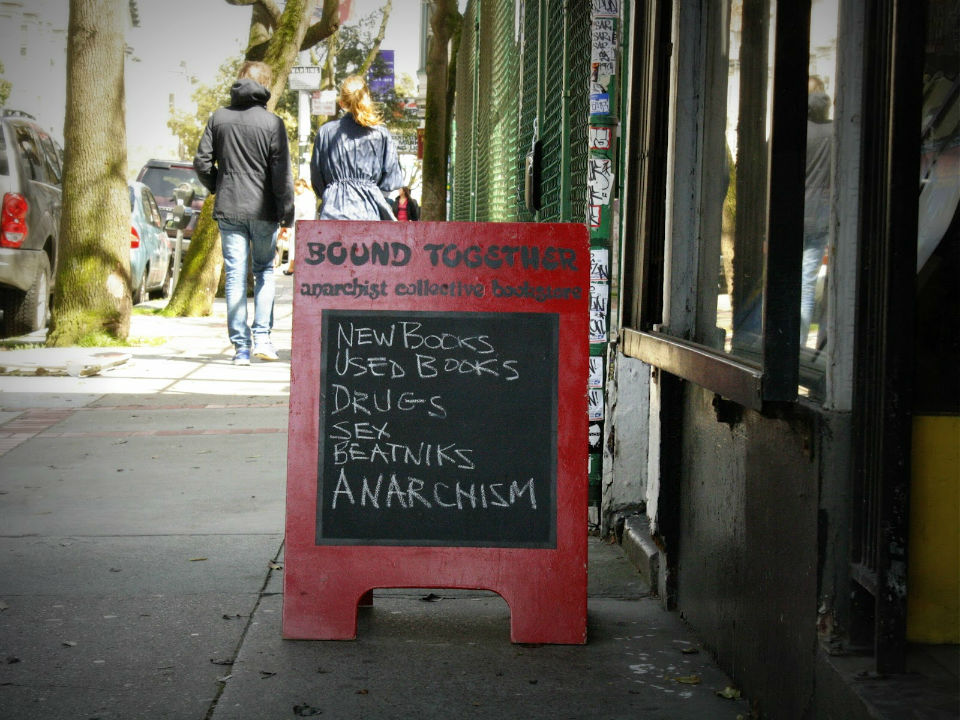 BOUND TOGETHER
anarchist collective bookstore
NEW BOOKS
USED BOOKS
DRUGS
SEX
BEATNIKS
ANARCHISM